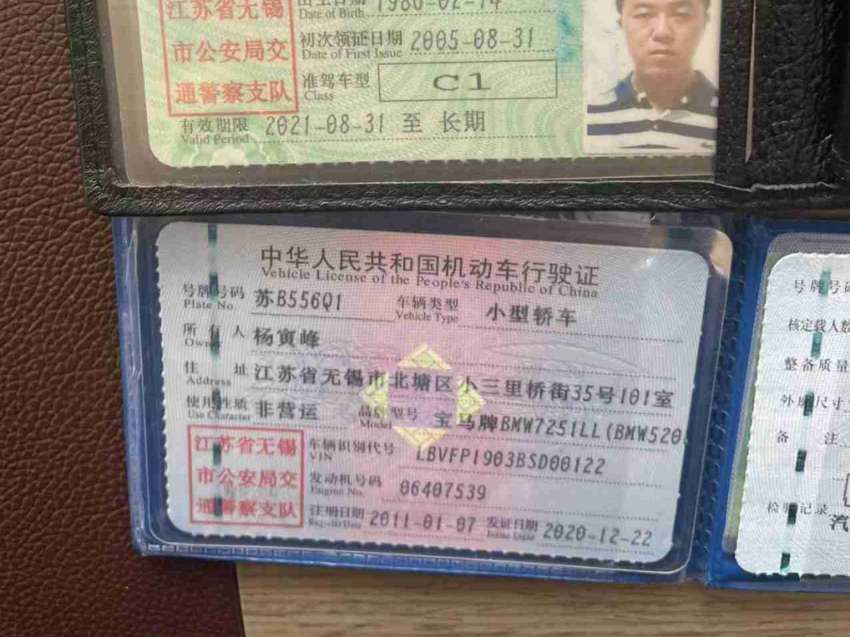 江苏省无锡
市公安局交
通警察支队
出生日期 1980-02-14
Date of Birth
初次领证日期 2005-08-31
Date of First Issue
准驾车型 C1
Class
有效期限 2021-08-31 至 长期
Valid Period
中华人民共和国机动车行驶证
Vehicle License of the People's Republic of China
号牌号码 苏B556Q1 车辆类型 小型轿车
Plate No. Vehicle Type
所有人 杨寅峰
Owner
住址 江苏省无锡市北塘区小三里桥街35号101室
Address
使用性质 非营运 品牌型号 宝马牌BMW7251LL(BMW520
Use Character Model
江苏省无锡
市公安局交
通警察支队
车辆识别代号 LBVFP1903BSD00122
VIN
发动机号码 06407539
Engine No.
注册日期 2011-01-07 发证日期 2020-12-22
Register Date Issue Date
号牌号码
核定载人数
整备质量
外廓尺寸
备注
检验记录
汽